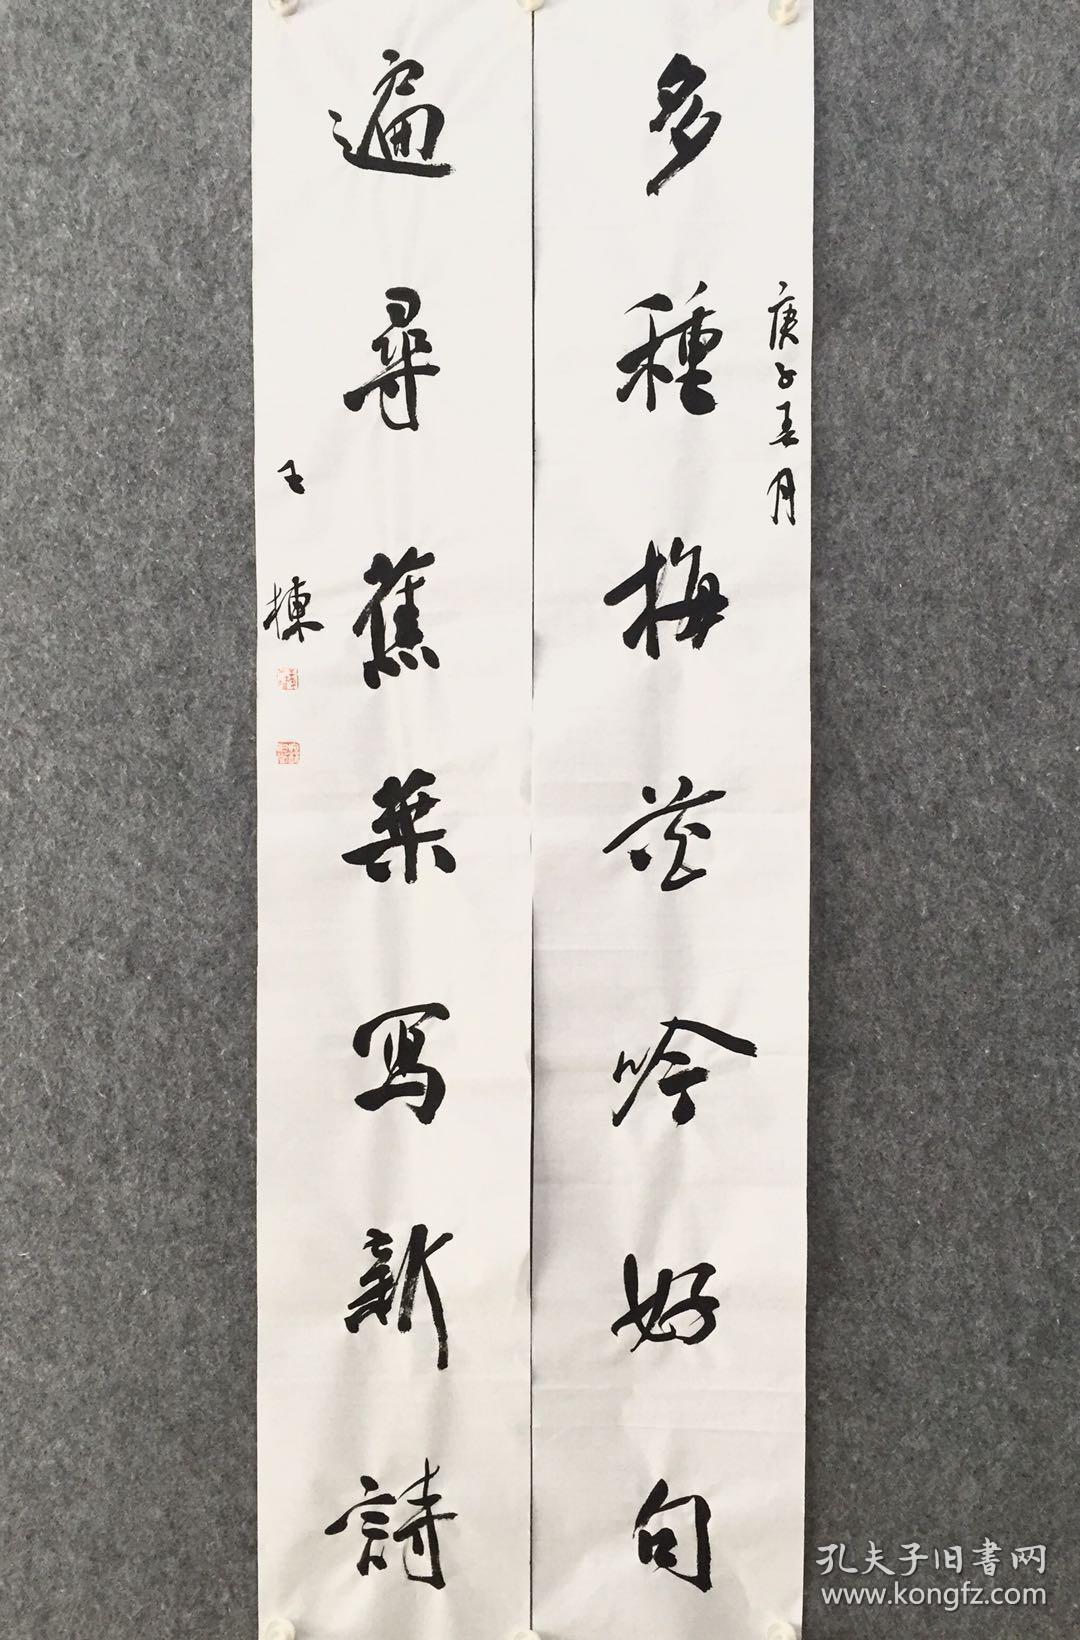 庚子春月
多種梅花吟好句
遍尋蕉葉寫新詩
王棟
孔夫子旧書网
www.kongfz.com